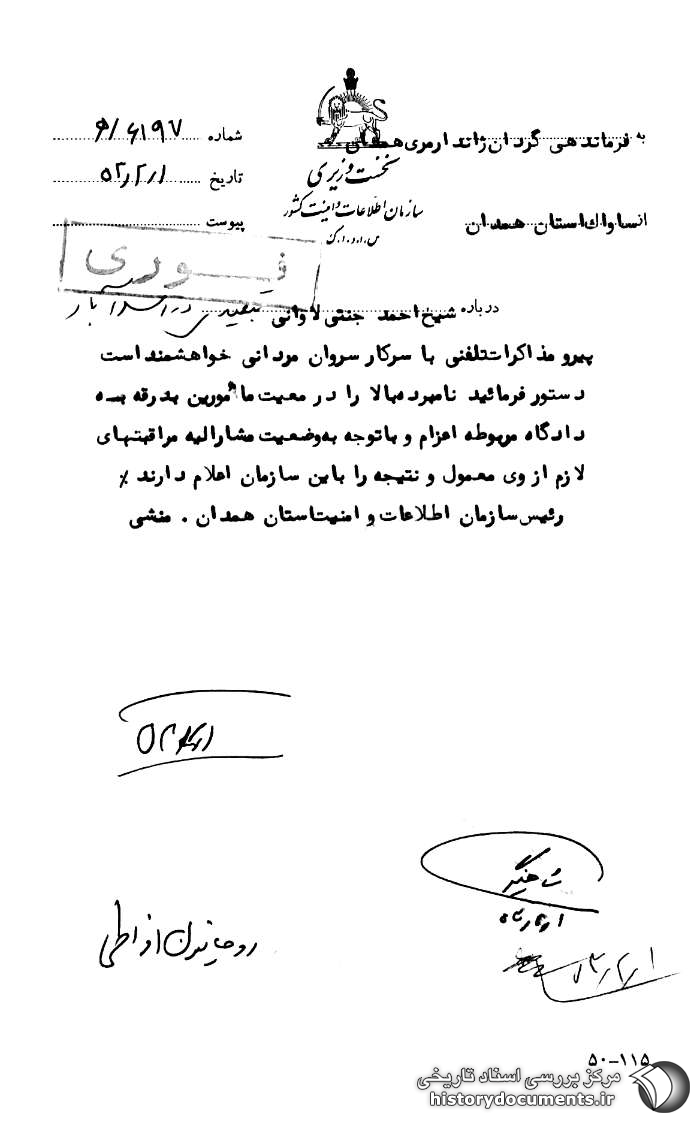 به فرماندهی گردان ژاندارمری همدان
شماره ۶۱۹۷/ه
نخست وزیری
تاریخ ۵۲٫۲٫۱
سازمان اطلاعات و امنیت کشور
از ساواک استان همدان
پیوست
س.ا.و.ا.ک
فوری
درباره شیخ احمد جنتی لادانی تبعیدی در اسدآباد
پیرو مذاکرات تلفنی با سرکار سروان مردانی خواهشمند است
دستور فرمائید نامبرده بالا را در معیت مامورین بدرقه به
دادگاه مربوطه اعزام و باتوجه به وضعیت مشارالیه مراقبتهای
لازم از وی معمول و نتیجه را باین سازمان اعلام دارند ٪
رئیس سازمان اطلاعات و امنیت استان همدان . منشی
روحانیون افراطی
۵۰-۱۱۵
مرکز بررسی اسناد تاریخی
historydocuments.ir